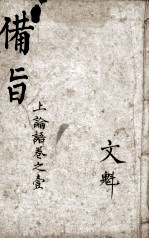 備旨
上論語卷之壹
文魁